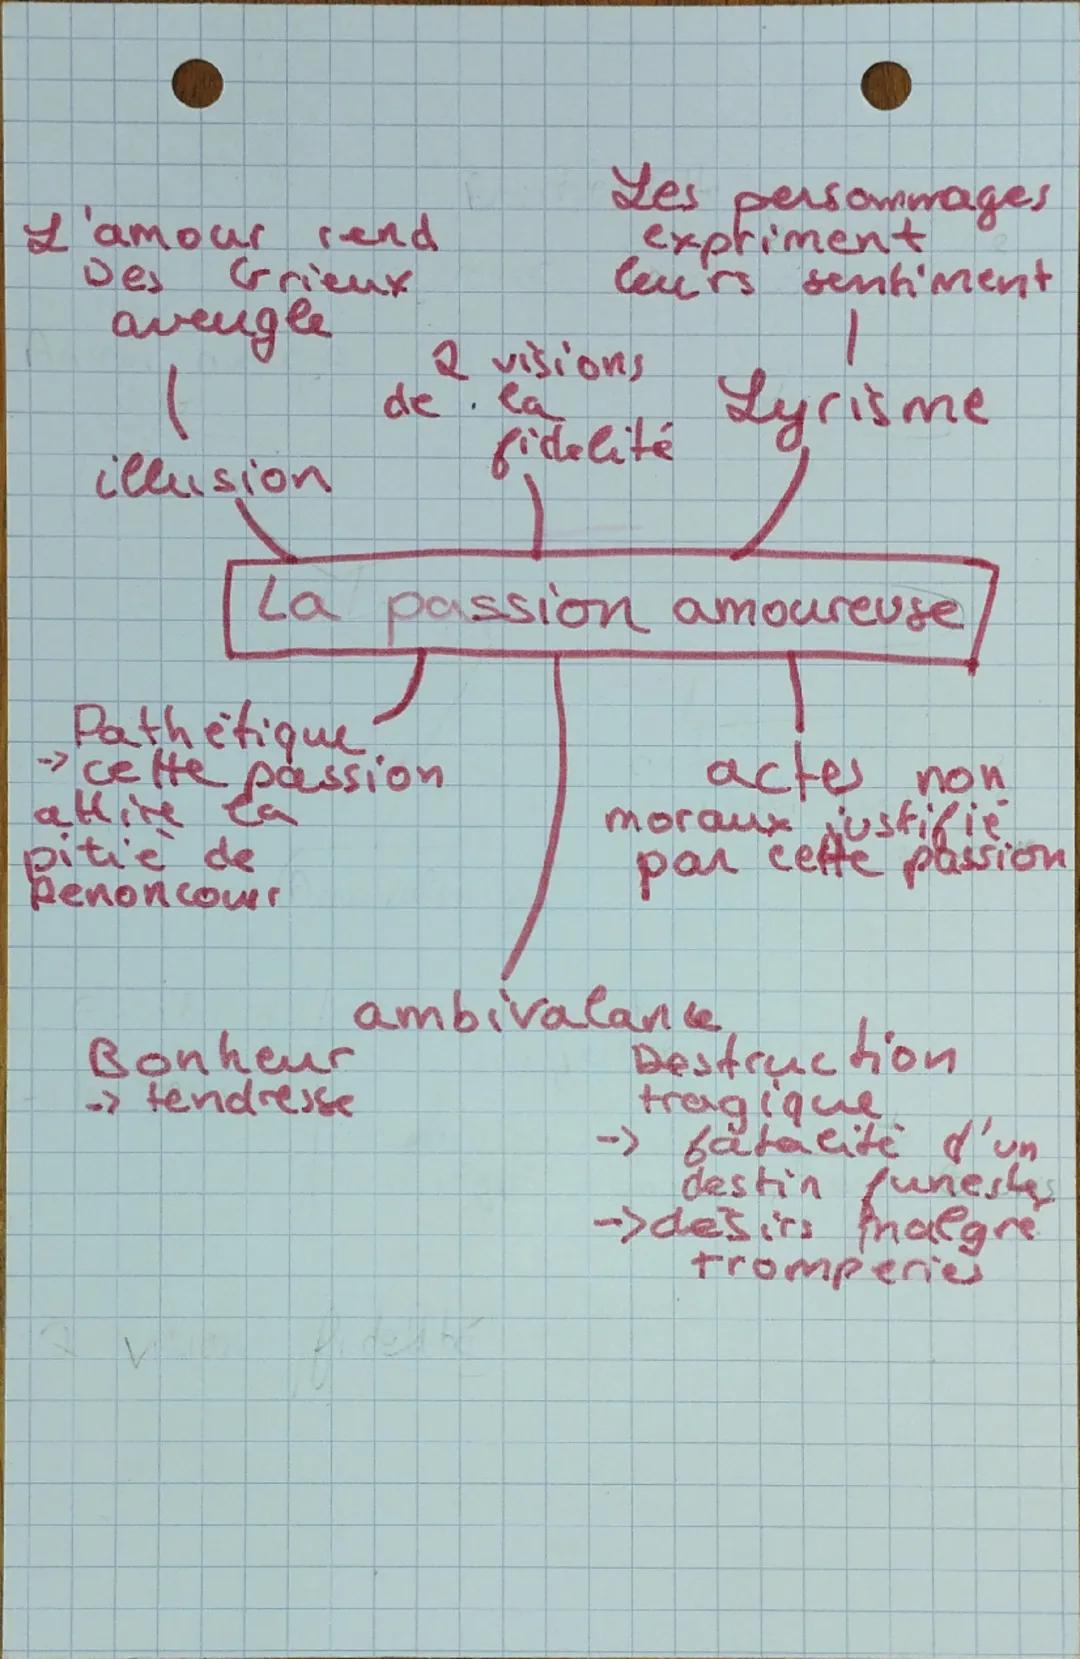 L'amour rend
Des Grieux
aveugle
illusion
2 visions
de la
fidelité
Les personnages
expriment
leurs sentiment
Lyrisme
La passion amoureuse
Pathétique
-> cette passion
attire la
pitié de
Renoncour
actes non
moraux justifié
par cette passion
ambivalance
Bonheur
-> tendresse
Destruction
tragique
-> fatalité d'un
destin funestes
-> desirs malgré
tromperies